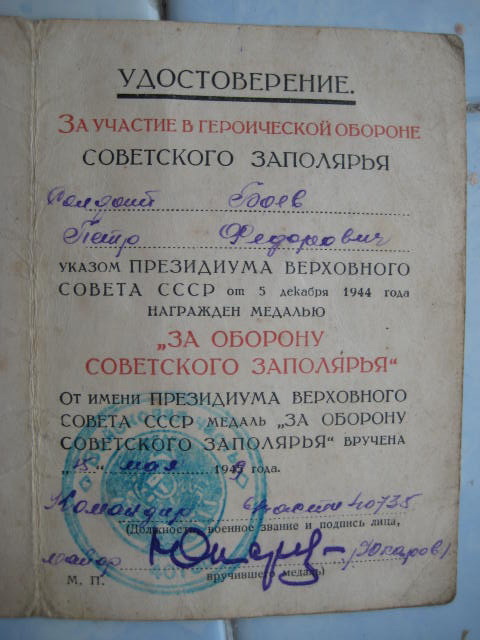 УДОСТОВЕРЕНИЕ.
ЗА УЧАСТИЕ В ГЕРОИЧЕСКОЙ ОБОРОНЕ
СОВЕТСКОГО ЗАПОЛЯРЬЯ
Солдат Боев
Петр Федорович
УКАЗОМ ПРЕЗИДИУМА ВЕРХОВНОГО
СОВЕТА СССР от 5 декабря 1944 года
НАГРАЖДЕН МЕДАЛЬЮ
„ЗА ОБОРОНУ
СОВЕТСКОГО ЗАПОЛЯРЬЯ“
ОТ ИМЕНИ ПРЕЗИДИУМА ВЕРХОВНОГО
СОВЕТА СССР МЕДАЛЬ „ЗА ОБОРОНУ
СОВЕТСКОГО ЗАПОЛЯРЬЯ“ ВРУЧЕНА
мая 194 года.
Командир 40735
(Должность, военное звание и подпись лица,
майор
М. П. вручившего медаль)